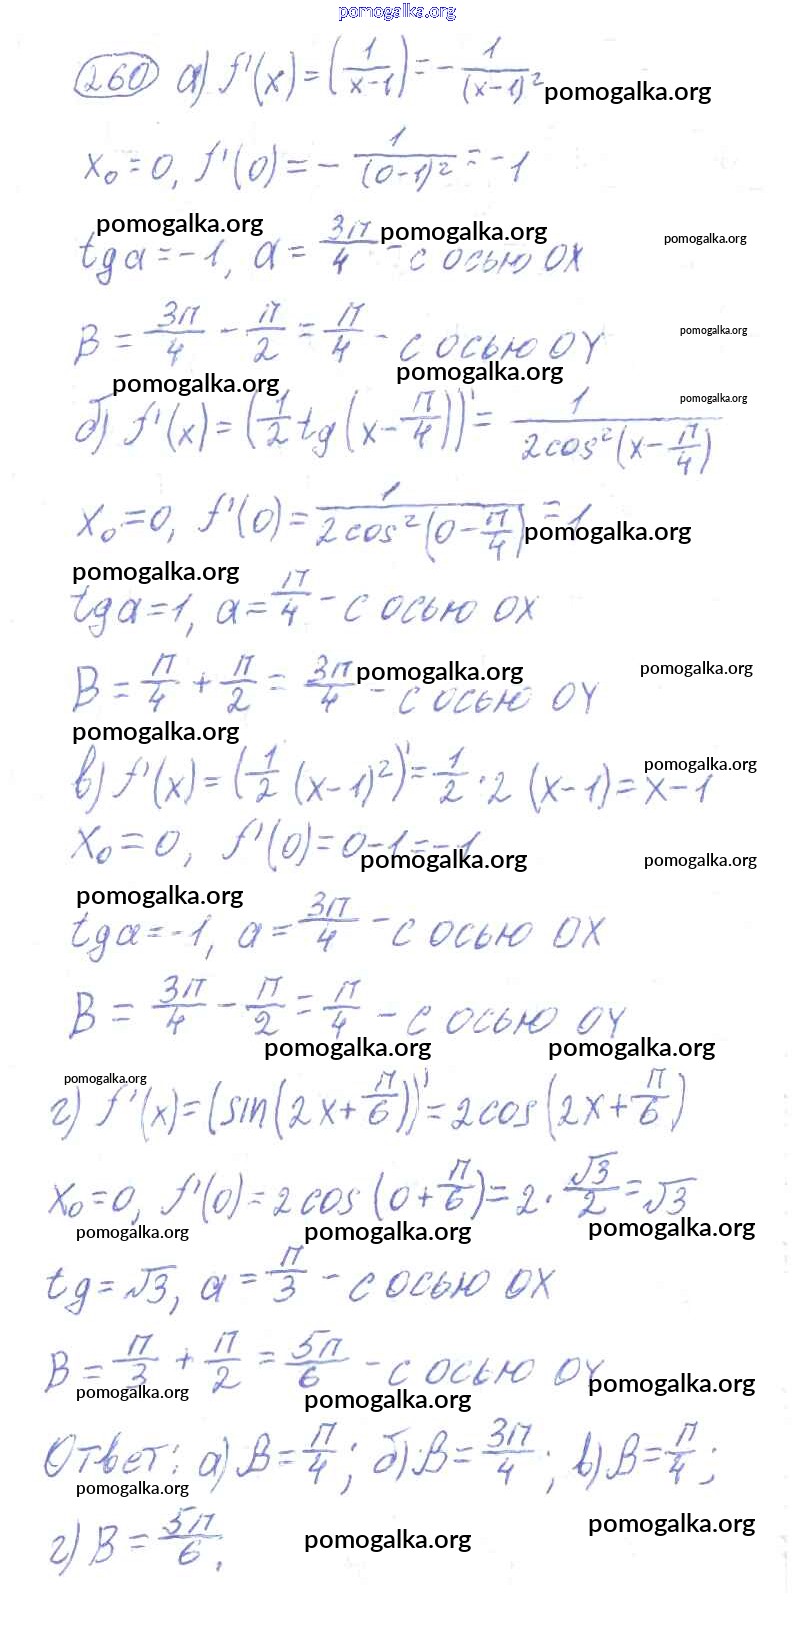 pomogalka.org
260 а) f'(x) = (1/(x-1)) = - 1/(x-1)² pomogalka.org
x₀ = 0, f'(0) = - 1/(0-1)² = -1
pomogalka.org pomogalka.org pomogalka.org
tg a = -1, a = 3π/4 - с осью OX
B = 3π/4 - π/2 = π/4 - с осью OY pomogalka.org
pomogalka.org pomogalka.org
б) f'(x) = (1/2 tg (x - π/4))' = 1/(2cos²(x - π/4)) pomogalka.org
x₀ = 0, f'(0) = 1/(2cos²(0 - π/4)) = 1 pomogalka.org
pomogalka.org
tg a = 1, a = π/4 - с осью OX
B = π/4 + π/2 = 3π/4 - с осью OY pomogalka.org pomogalka.org
pomogalka.org
в) f'(x) = (1/2 (x-1)²)' = 1/2 · 2 (x-1) = x-1 pomogalka.org
x₀ = 0, f'(0) = 0-1 = -1
pomogalka.org pomogalka.org
pomogalka.org
tg a = -1, a = 3π/4 - с осью OX
B = 3π/4 - π/2 = π/4 - с осью OY
pomogalka.org pomogalka.org
pomogalka.org
г) f'(x) = (sin(2x + π/6))' = 2cos(2x + π/6)
x₀ = 0, f'(0) = 2cos(0 + π/6) = 2 · √3/2 = √3
pomogalka.org pomogalka.org pomogalka.org
tg = √3, a = π/3 - с осью OX
B = π/3 + π/2 = 5π/6 - с осью OY
pomogalka.org pomogalka.org pomogalka.org
Ответ: а) B = π/4; б) B = 3π/4; в) B = π/4;
pomogalka.org
г) B = 5π/6.
pomogalka.org pomogalka.org